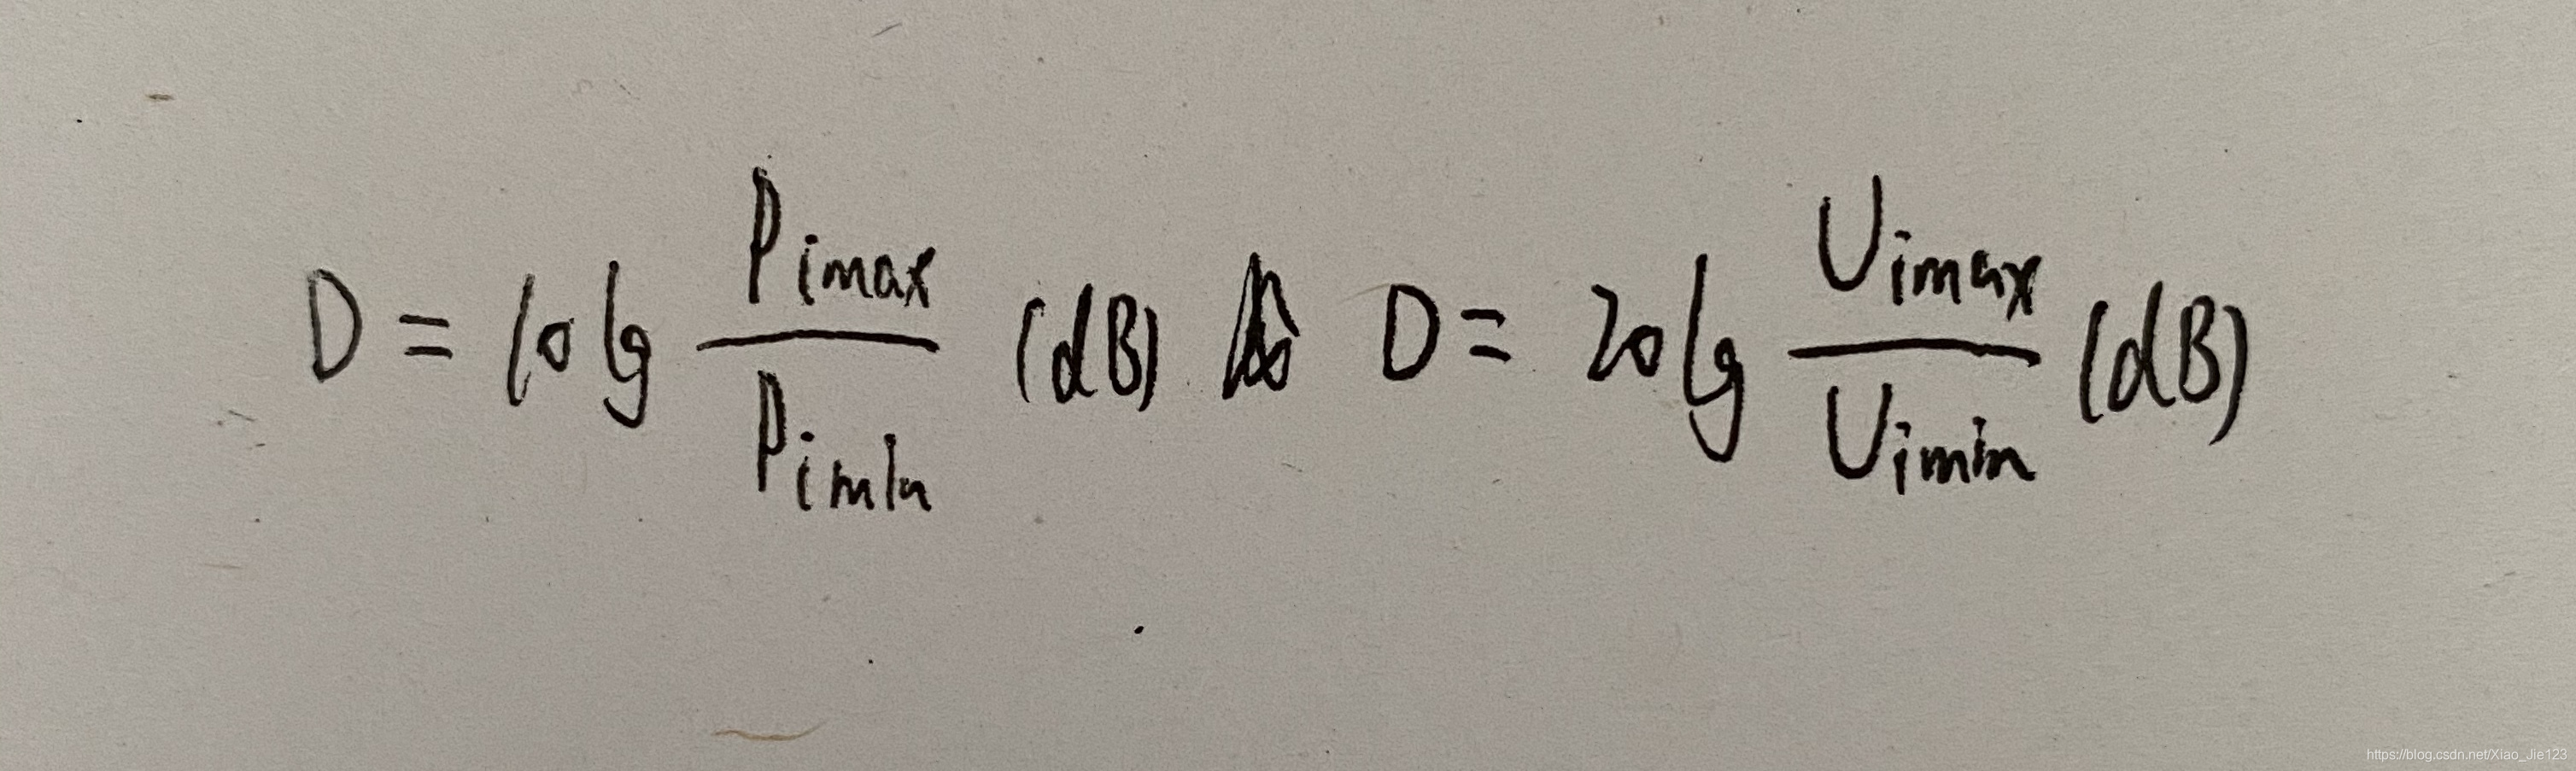 D = 10 lg P_imax / P_imin (dB) D = 20 lg U_imax / U_imin (dB)
https://blog.csdn.net/Xiao_Jie123